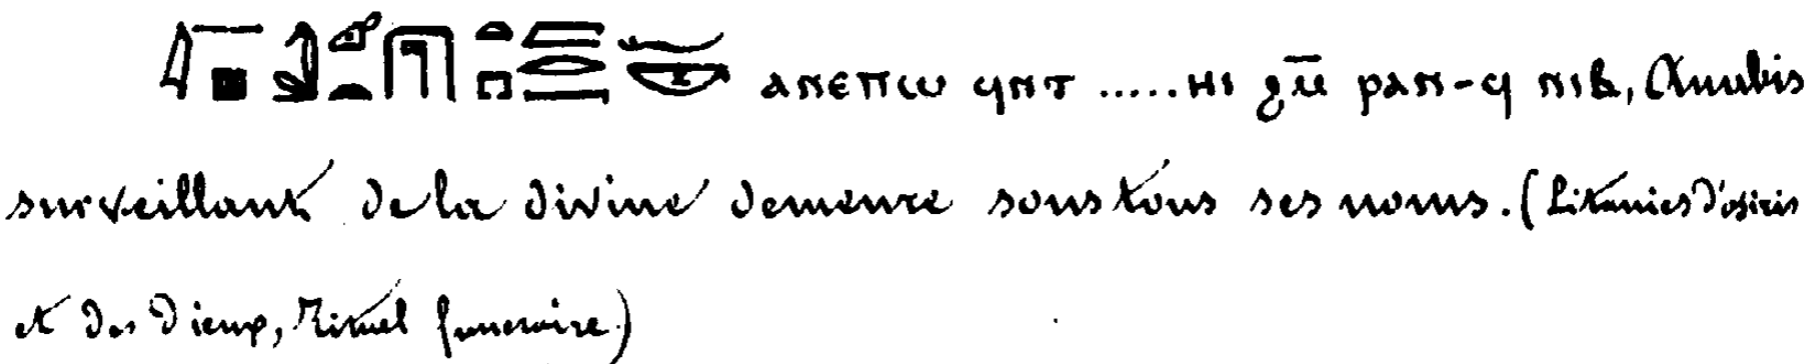 ⲁⲛⲉⲡⲱ ϥⲛⲧ .....ⲏⲓ ϩⲙ̄ ⲣⲁⲛ-ϥ ⲛⲓⲃ, Anubis
surveillant de la divine demeure sous tous ses noms. (Litanies d'osiris
et des Dieux, Rituel funéraire.)